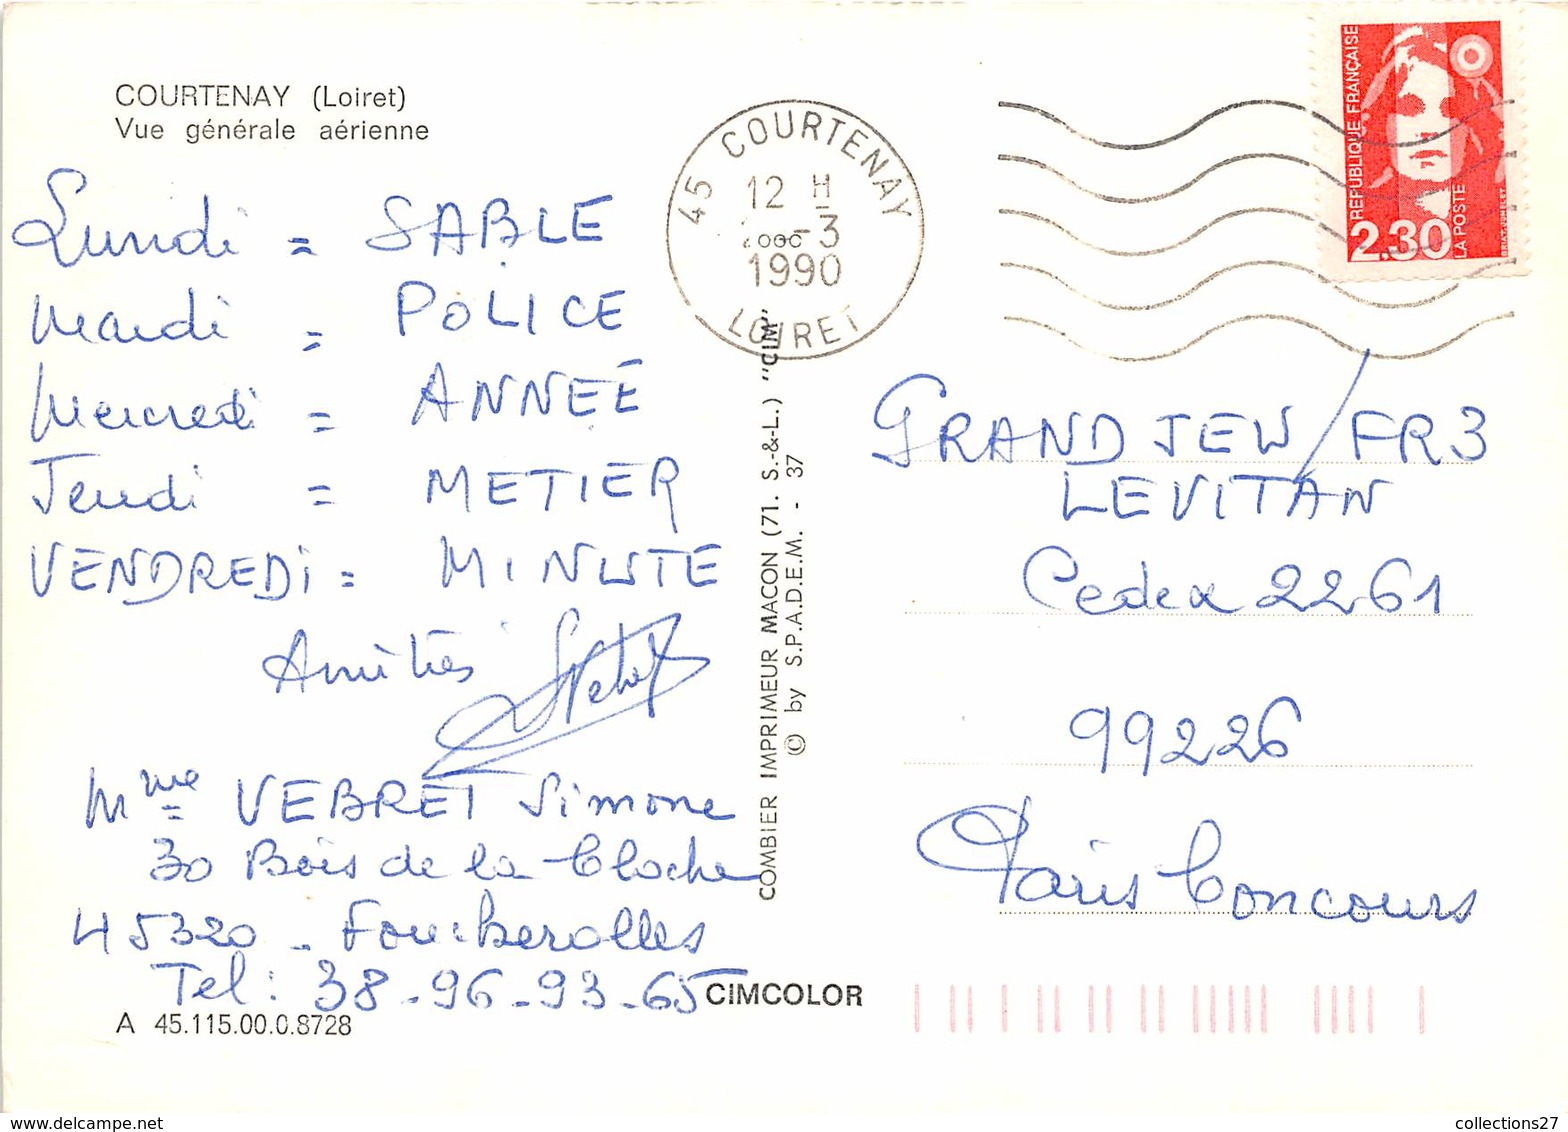 COURTENAY (Loiret)
Vue générale aérienne
Lundi = SABLE
Mardi = POLICE
Mercredi = ANNEE
Jeudi = METIER
VENDREDI = MINUTE
Amitiés
Mme VEBRET Simone
30 Bois de la Cloche
45320 - Foucherolles
Tel: 38-96-93-65
A 45.115.00.0.8728
COMBIER IMPRIMEUR MACON (71. S.-&-L.) "CIM"
© by S.P.A.D.E.M. - 37
CIMCOLOR
45 COURTENAY
12 H
-3
1990
LOIRET
REPUBLIQUE FRANÇAISE
2.30
LA POSTE
GRAND JEW / FR3
LEVITAN
Cedex 2261
99226
Paris Concours
collections27